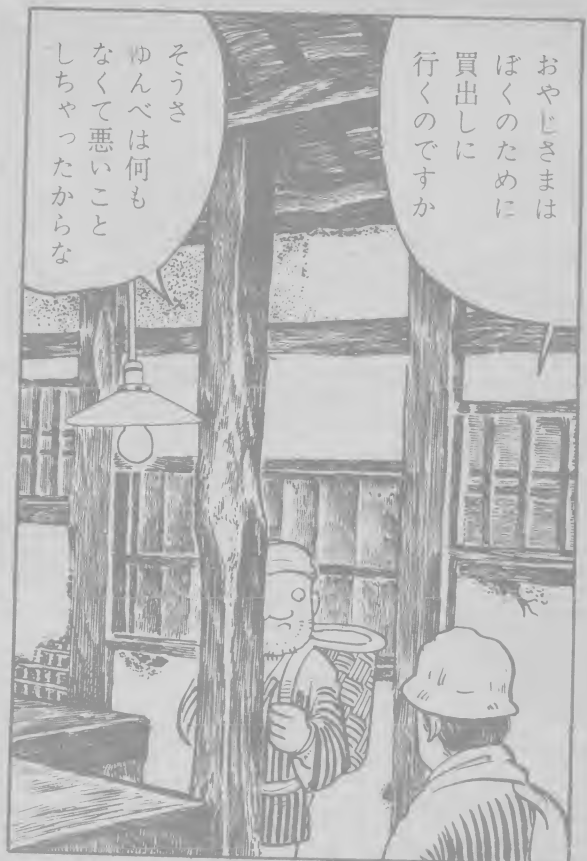 おやじさまは
ぼくのために
買出しに
行くのですか
そうさ
ゆんべは何も
なくて悪いこと
しちゃったからな